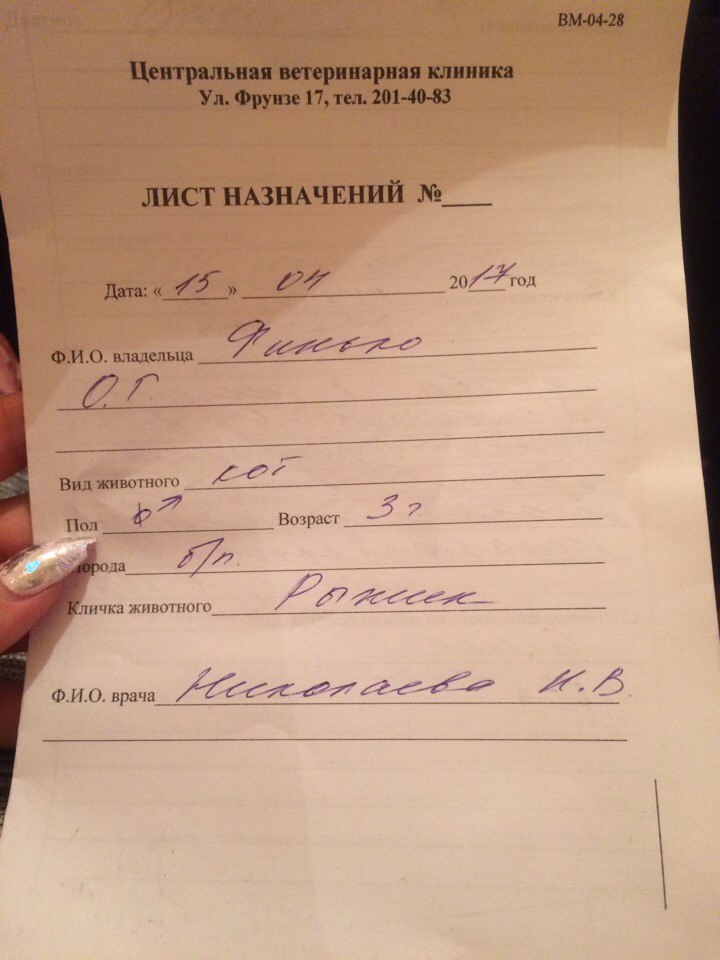 ВМ-04-28
Центральная ветеринарная клиника
Ул. Фрунзе 17, тел. 201-40-83
ЛИСТ НАЗНАЧЕНИЙ №____
Дата: «15» 04 2017 год
Ф.И.О. владельца Финько
О.Г.
Вид животного кот
Пол ♂ Возраст 3 г
орода б/п.
Кличка животного Рыжик
Ф.И.О. врача Николаева Н.В.